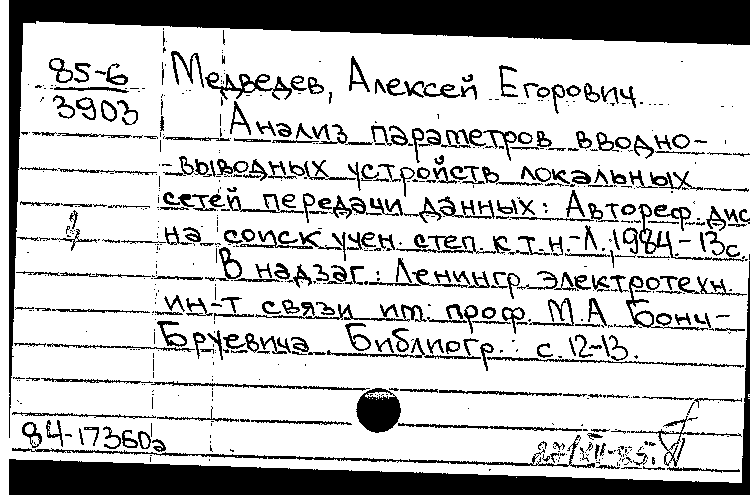 85-6
3903
Медведев, Алексей Егорович.
Анализ параметров вводно-
-выводных устройств локальных
сетей передачи данных: Автореф. дис
на соиск. учен. степ. к.т.н.-Л., 1984.-13с.
В надзаг.: Ленингр. электротехн.
ин-т связи им. проф. М.А Бонч-
Бруевича. Библиогр.: с. 12-13.
84-17360а